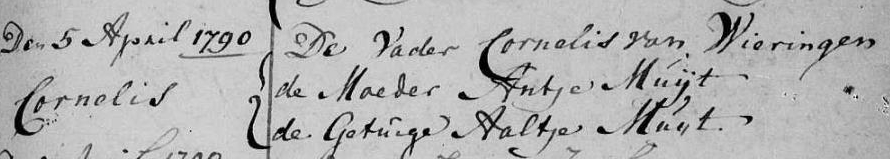 Den 5 April 1790
Cornelis
De Vader Cornelis van Wieringen
de Moeder Antje Muijt
de Getuige Aaltje Muijt.